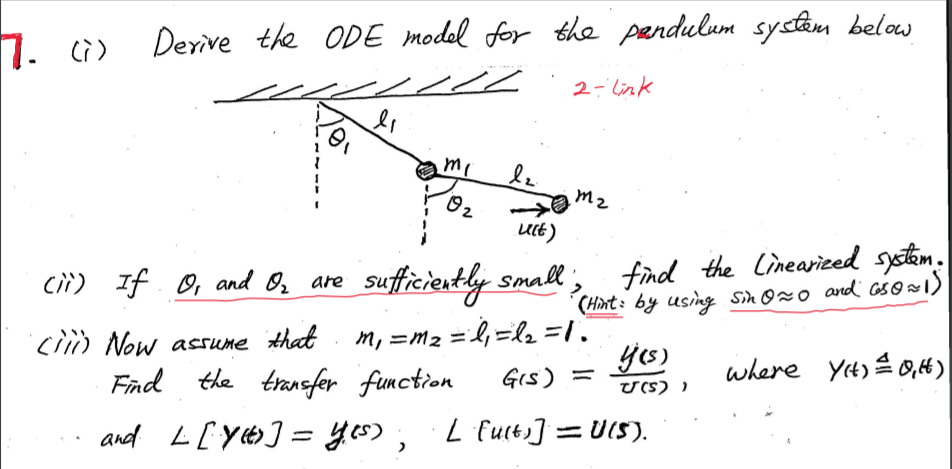 7. (i) Derive the ODE model for the pendulum system below
2-link
θ₁ l₁
m₁ l₂
θ₂ m₂
u(t)
(ii) If θ₁ and θ₂ are sufficiently small, find the linearized system.
(Hint: by using sinθ≈θ and cosθ≈1)
(iii) Now assume that m₁=m₂=l₁=l₂=1.
Find the transfer function G(s) = y(s)/U(s), where y(t)≜θ₁(t)
and L[y(t)] = y(s), L[u(t)] = U(s).